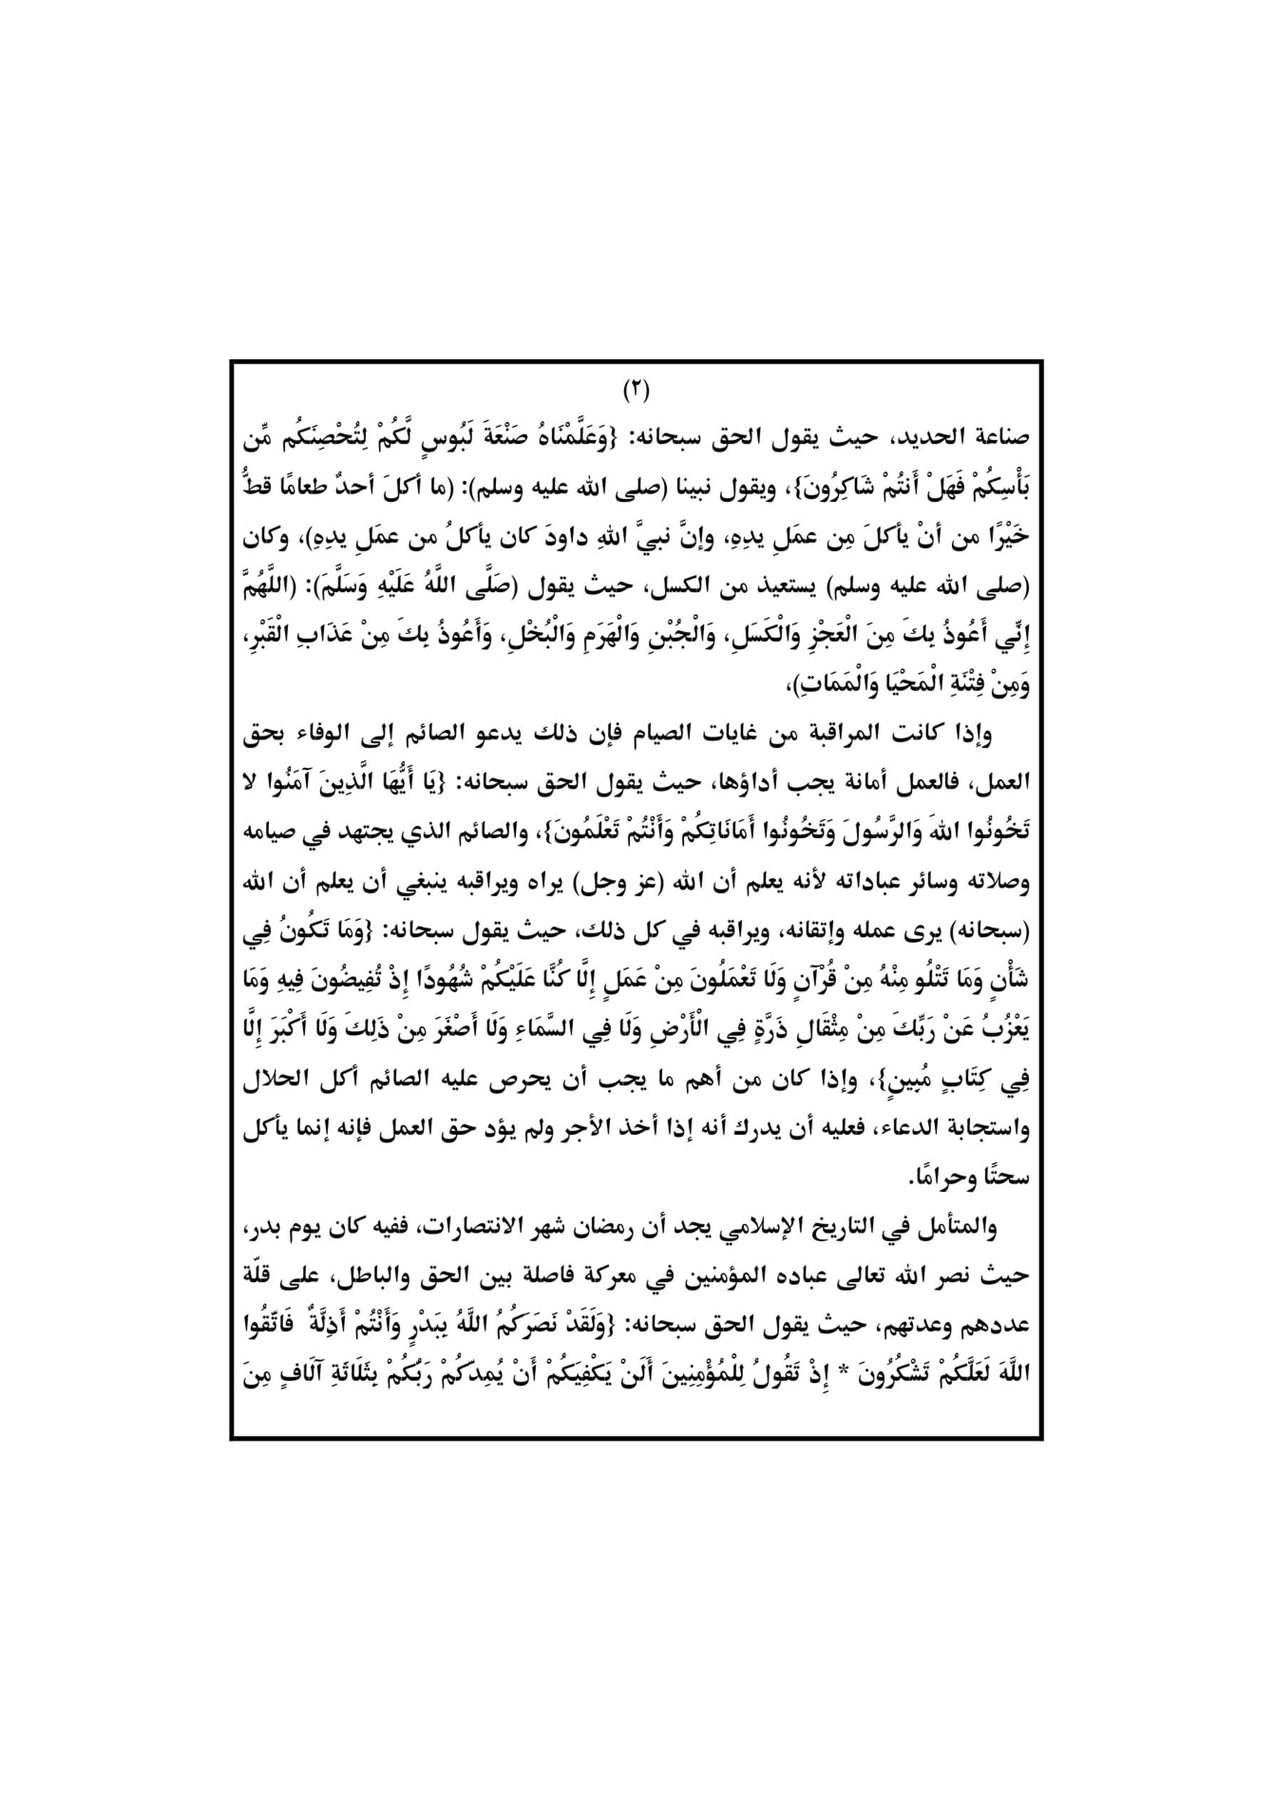 (٢)
صناعة الحديد، حيث يقول الحق سبحانه: {وَعَلَّمْنَاهُ صَنْعَةَ لَبُوسٍ لَّكُمْ لِتُحْصِنَكُم مِّن
بَأْسِكُمْ فَهَلْ أَنتُمْ شَاكِرُونَ}، ويقول نبينا (صلى الله عليه وسلم): (ما أكلَ أحدٌ طعامًا قطُّ
خَيْرًا من أنْ يأكلَ مِن عمَلِ يدِهِ، وإنَّ نبيَّ اللهِ داودَ كان يأكلُ من عمَلِ يدِهِ)، وكان
(صلى الله عليه وسلم) يستعيذ من الكسل، حيث يقول (صَلَّى اللَّهُ عَلَيْهِ وَسَلَّمَ): (اللَّهُمَّ
إِنِّي أَعُوذُ بِكَ مِنَ الْعَجْزِ وَالْكَسَلِ، وَالْجُبْنِ وَالْهَرَمِ وَالْبُخْلِ، وَأَعُوذُ بِكَ مِنْ عَذَابِ الْقَبْرِ،
وَمِنْ فِتْنَةِ الْمَحْيَا وَالْمَمَاتِ)،
وإذا كانت المراقبة من غايات الصيام فإن ذلك يدعو الصائم إلى الوفاء بحق
العمل، فالعمل أمانة يجب أداؤها، حيث يقول الحق سبحانه: {يَا أَيُّهَا الَّذِينَ آمَنُوا لا
تَخُونُوا اللهَ وَالرَّسُولَ وَتَخُونُوا أَمَانَاتِكُمْ وَأَنْتُمْ تَعْلَمُونَ}، والصائم الذي يجتهد في صيامه
وصلاته وسائر عباداته لأنه يعلم أن الله (عز وجل) يراه ويراقبه ينبغي أن يعلم أن الله
(سبحانه) يرى عمله وإتقانه، ويراقبه في كل ذلك، حيث يقول سبحانه: {وَمَا تَكُونُ فِي
شَأْنٍ وَمَا تَتْلُو مِنْهُ مِنْ قُرْآنٍ وَلَا تَعْمَلُونَ مِنْ عَمَلٍ إِلَّا كُنَّا عَلَيْكُمْ شُهُودًا إِذْ تُفِيضُونَ فِيهِ وَمَا
يَعْزُبُ عَنْ رَبِّكَ مِنْ مِثْقَالِ ذَرَّةٍ فِي الْأَرْضِ وَلَا فِي السَّمَاءِ وَلَا أَصْغَرَ مِنْ ذَلِكَ وَلَا أَكْبَرَ إِلَّا
فِي كِتَابٍ مُبِينٍ}، وإذا كان من أهم ما يجب أن يحرص عليه الصائم أكل الحلال
واستجابة الدعاء، فعليه أن يدرك أنه إذا أخذ الأجر ولم يؤد حق العمل فإنه إنما يأكل
سحتًا وحرامًا.
والمتأمل في التاريخ الإسلامي يجد أن رمضان شهر الانتصارات، ففيه كان يوم بدر،
حيث نصر الله تعالى عباده المؤمنين في معركة فاصلة بين الحق والباطل، على قلّة
عددهم وعدتهم، حيث يقول الحق سبحانه: {وَلَقَدْ نَصَرَكُمُ اللَّهُ بِبَدْرٍ وَأَنْتُمْ أَذِلَّةٌ فَاتَّقُوا
اللَّهَ لَعَلَّكُمْ تَشْكُرُونَ * إِذْ تَقُولُ لِلْمُؤْمِنِينَ أَلَنْ يَكْفِيَكُمْ أَنْ يُمِدَّكُمْ رَبُّكُمْ بِثَلَاثَةِ آلَافٍ مِنَ